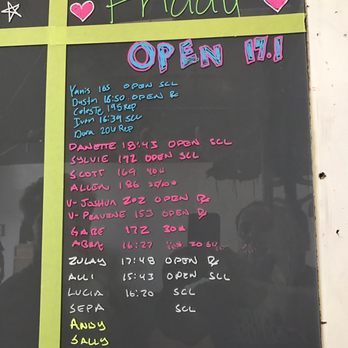 Friday
OPEN 19.1
Yanis 165 OPEN SCL
Dustn 16:50 OPEN Rx
Celeste 195 REP
Ivan 16:39 SCL
Dora 204 REP
DANETTE 18:43 OPEN SCL
SYLVIE 172 OPEN SCL
SCOTT 169
ALLEN 186
V-JOSHUA 202 OPEN Rx
V-PRAVENE 153 OPEN Rx
GABE 172
16:27
ZULAY 17:48 OPEN Rx
ALLI 15:43 OPEN SCL
LUCIA 16:20 SCL
SEPA SCL
ANDY
SALLY